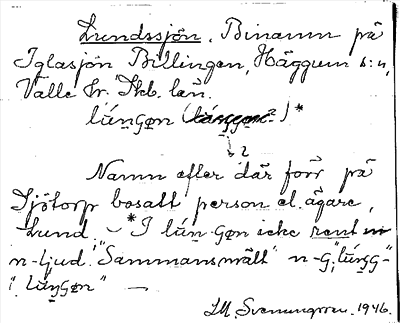 Lundssjön. Binamn på
Iglasjön Billingen, Häggum s:n,
Valle hr. Skb. län.
lúŋgǫn ( )*
2
Namn efter där förr på
Sjötorp bosatt person el. ägare,
Lund. *I lún-gǫn icke rent
n-ljud. "Sammansmält" n-g,
"lúŋgǫn" —
1946.